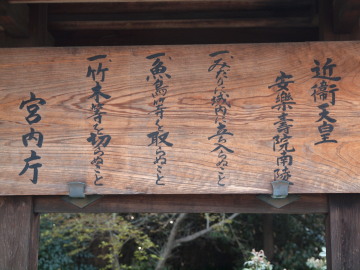 近衞天皇
安樂壽院南陵
一みだりに域内に立入らぬこと
一魚鳥等を取らぬこと
一竹木等を切らぬこと
宮内庁